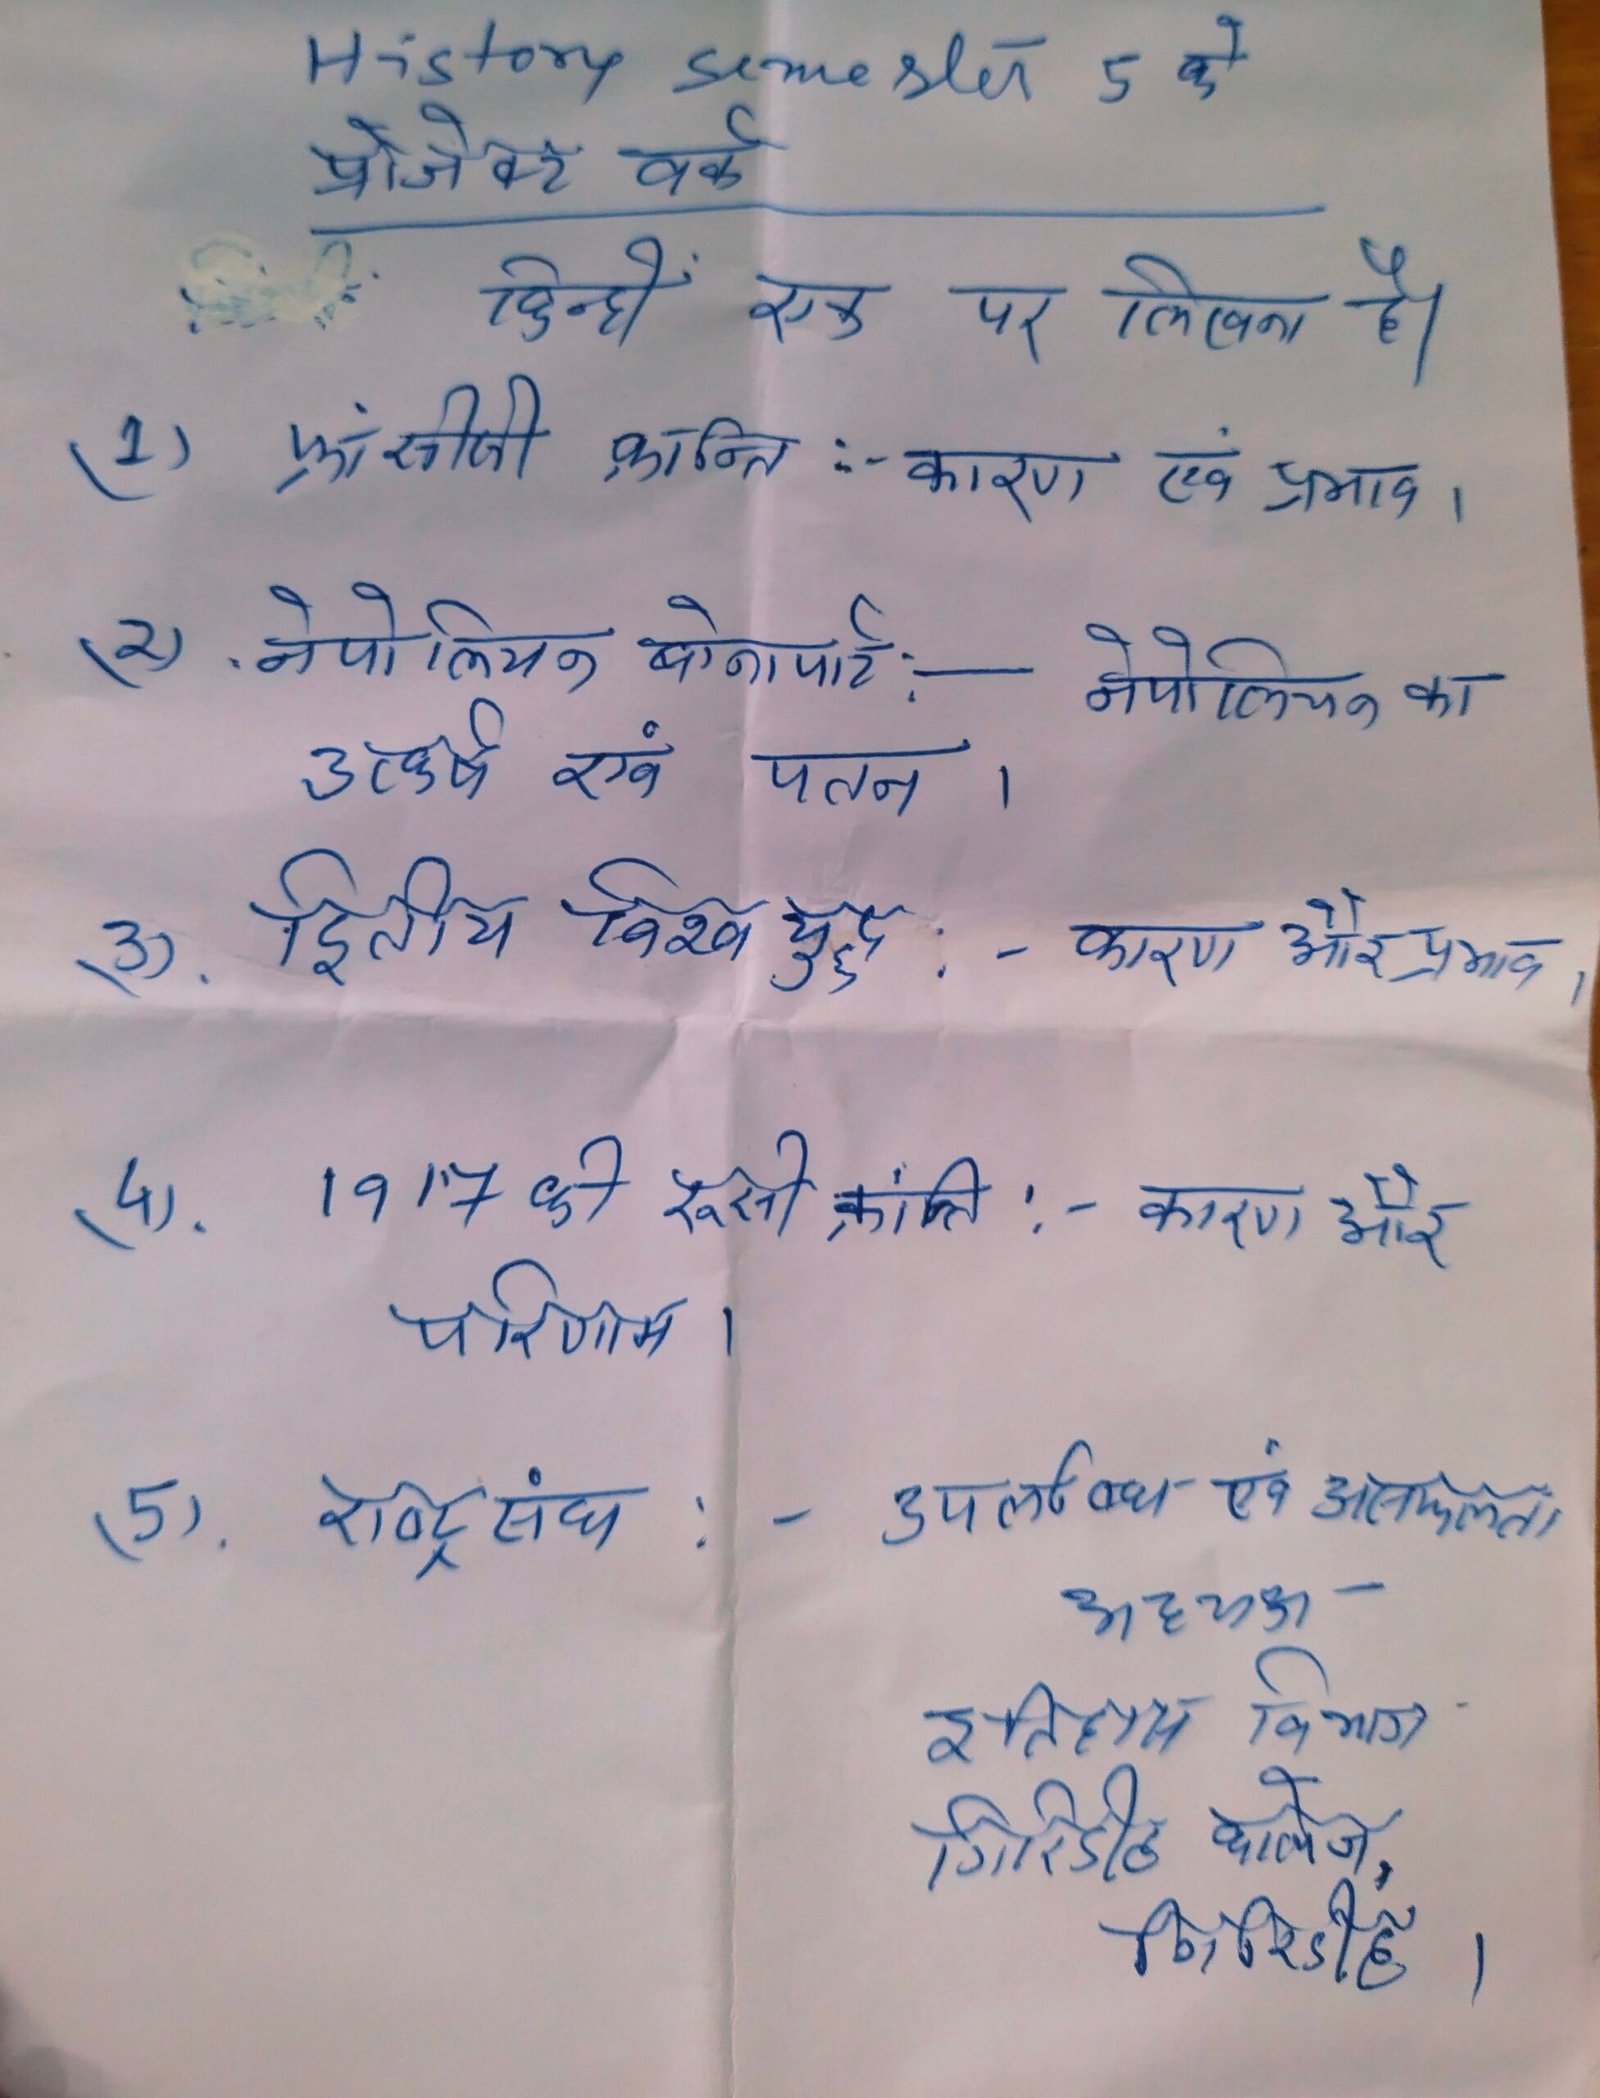 History semester 5 के
प्रोजेक्ट वर्क
किन्हीं एक पर लिखना है।
(1) फ्रांसीसी क्रान्ति :- कारण एवं प्रभाव ।
(2). नेपोलियन बोनापार्ट :— नेपोलियन का
उत्कर्ष एवं पतन ।
(3). द्वितीय विश्व युद्ध :- कारण और प्रभाव ।
(4). 1917 की रूसी क्रांति :- कारण और
परिणाम ।
(5). राष्ट्र संघ :- उपलब्धि एवं असफलता
अध्यक्ष –
इतिहास विभाग
गिरिडीह कॉलेज,
गिरिडीह ।